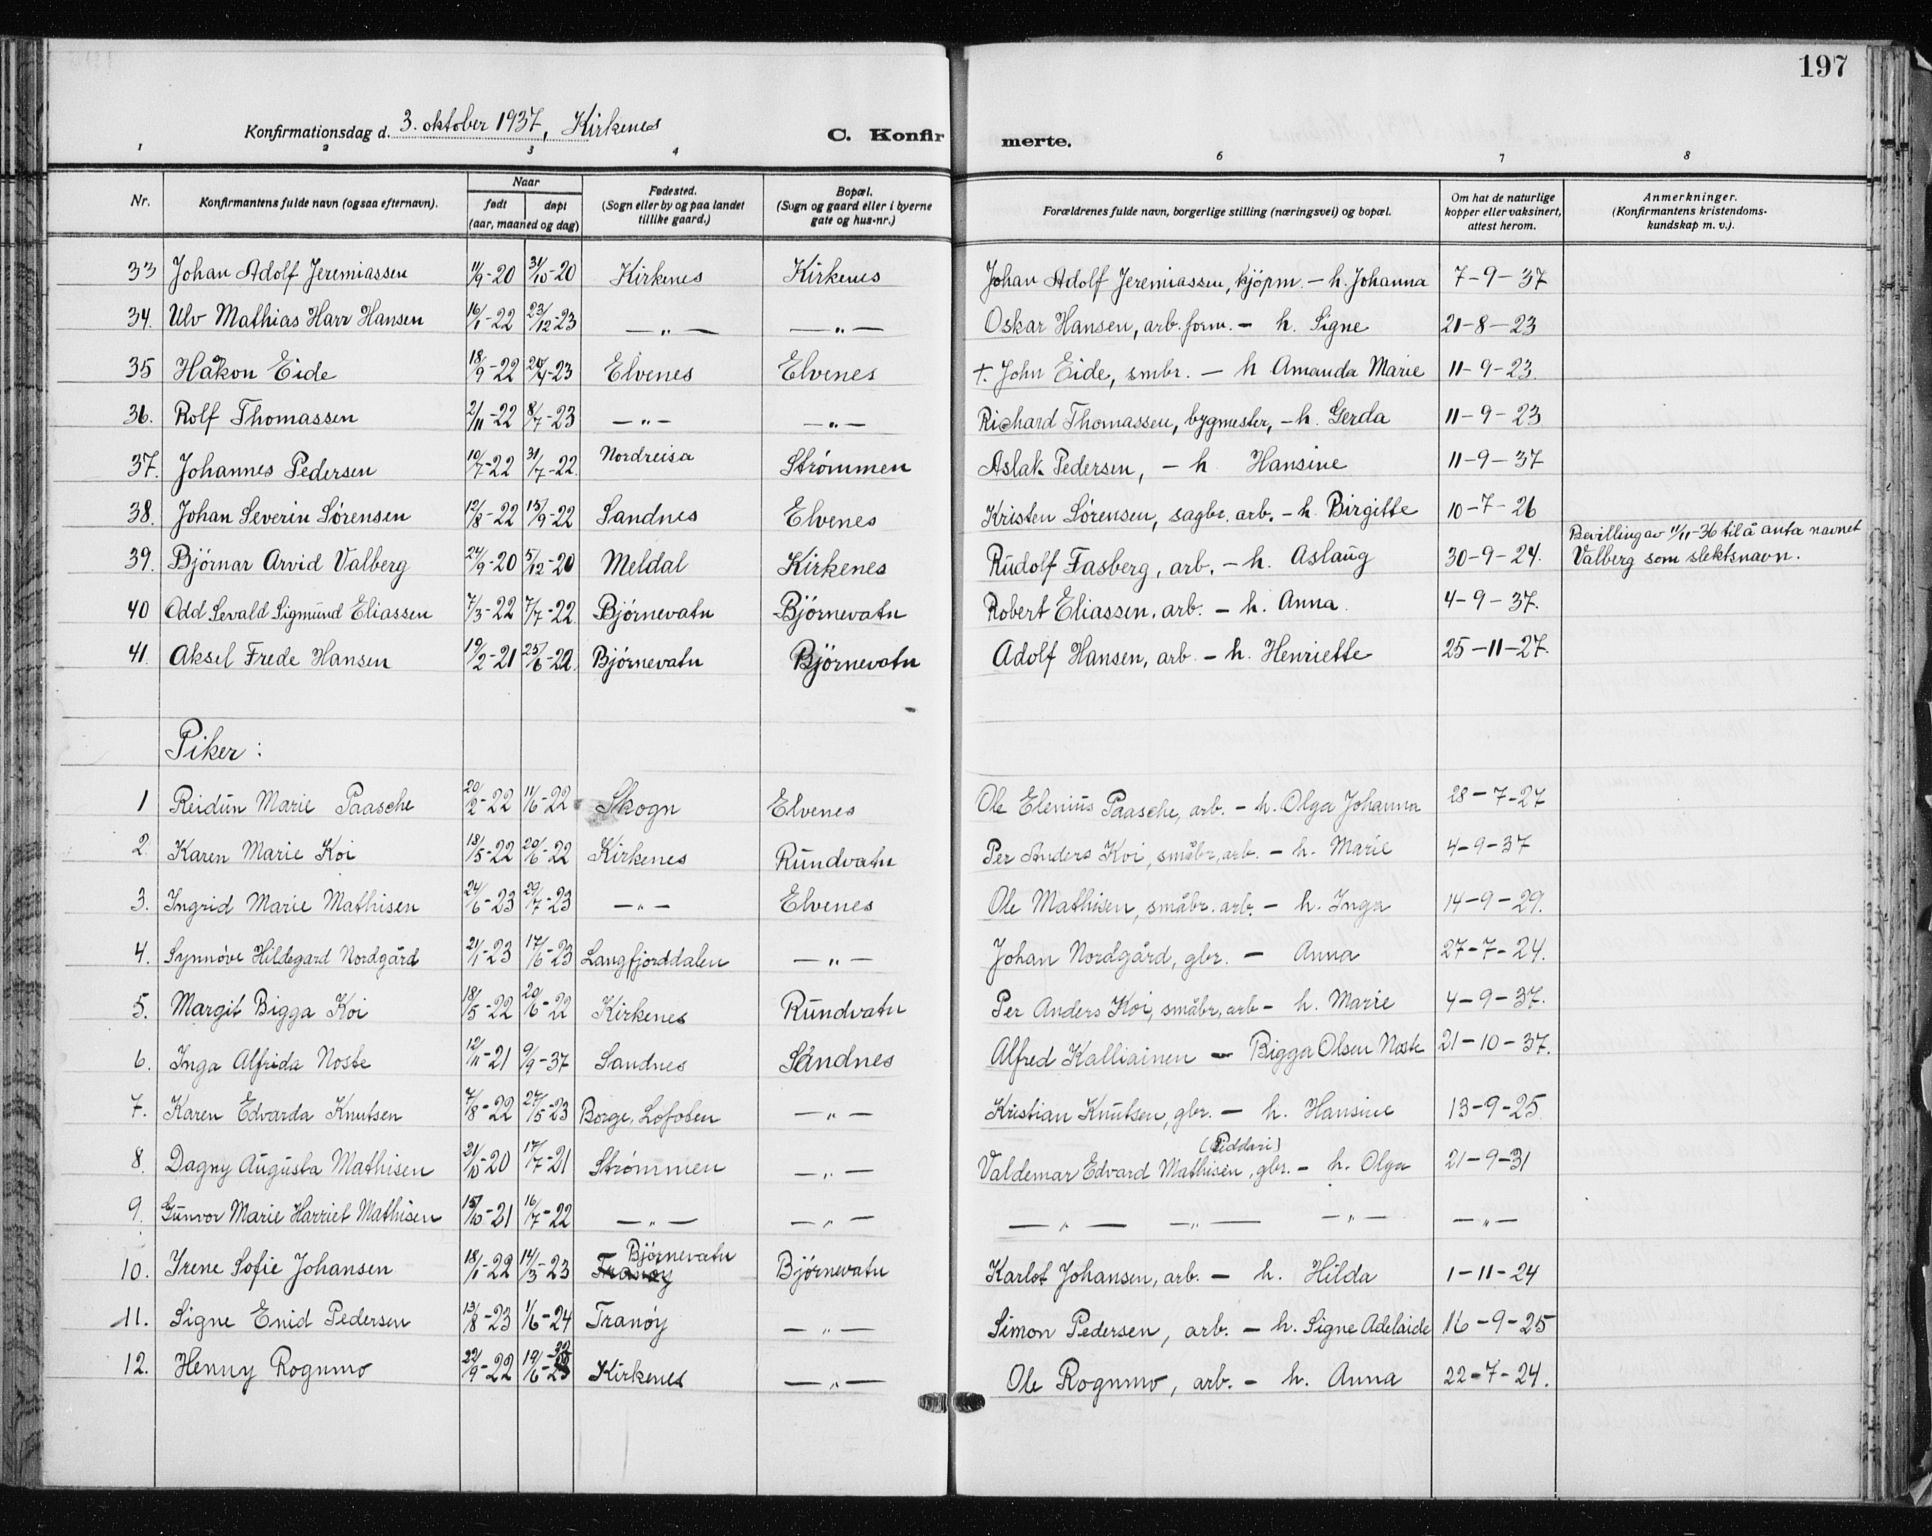 197
Konfirmationsdag d. 3. oktober 1937, Kirkenes C. Konfirmerte.
1 2 3 4 6 7 8
Nr. Konfirmantens fulde navn (ogsaa efternavn). Naar født døpt (aar, maaned og dag) Fødested. (Sogn eller by og paa landet tillike gaard.) Bopæl. (Sogn og gaard eller i byerne gate og hus-nr.) Forældrenes fulde navn, borgerlige stilling (næringsvei) og bopæl. Om hat de naturlige kopper eller vaksinert, attest herom. Anmerkninger. (Konfirmantens kristendomskundskap m. v.).
33 Johan Adolf Jeremiassen 11/9-20 31/10-20 Kirkenes Kirkenes Johan Adolf Jeremiassen, kjöpm. - h. Johanna 7-9-37
34. Ulv Mathias Harr Hansen 16/1-22 23/12-23 — „ — — „ — Oskar Hansen, arb. form. - h. Signe 21-8-23
35 Håkon Eide 18/9-22 -23 Elvenes Elvenes +. John Eide, smbr. - h Amanda Marie 11-9-23.
36. Rolf Thomassen 2/11-22 8/7-23 — „ — — „ — Richard Thomassen, bygmester, - h. Gerda 11-9-23
37. Johannes Pedersen 10/7-22 31/7-22. Nordreisa Strømmen Aslak Pedersen, - h Hansine 11-9-37
38. Johan Severin Sørensen 12/8-22 13/9-22 Sandnes Elvenes Kristen Sørensen, sagbr. arb. - h. Birgitte 10-7-26
39. Bjørnar Arvid Valberg 24/9-20 5/12-20 Meldal Kirkenes Rudolf Fasberg, arb. - h. Aslaug 30-9-24. Bevilling av 11/11-36 til å anta navnet Valberg som slektsnavn.
40 Odd Sevald Sigmund Eliassen 7/3-22 7/7-22. Bjørnevatn Bjørnevatn Robert Eliassen, arb. - h. Anna. 4-9-37.
41. Aksel Frede Hansen 19/2-21 25/6-22. Bjørnevatn Bjørnevatn Adolf Hansen, arb. - h. Henriette 25-11-27.
Piker:
1 Reidun Marie Paasche 20/2-22 11/6-22 Skogn Elvenes Ole Elenius Paasche, arb. - h. Olga Johanna 28-7-27
2. Karen Marie Koi 18/5-22 20/6-22 Kirkenes Rundvatn Per Anders Koi, småbr, arb. - h. Marie 4-9-37
3. Ingrid Marie Mathisen 24/6-23 29/7-23 — „ — Elvenes Ole Mathisen, småbr. arb. - h. Inga 14-9-29.
4. Synnøve Hildegard Nordgård 21/1-23 17/6-23 Langfjorddalen — „ — Johan Nordgård, gbr. - Anna 27-7-24.
5. Margit Bigga Koi 18/5-22 20/6-22 Kirkenes Rundvatn Per Anders Koi, småbr, arb - h. Marie 4-9-37.
6. Inga Alfrida Noste 12/11-21 9/9-37 Sandnes Sandnes Alfred Kalliainen - Bigga Olsen Noste 21-10-37.
7. Karen Edvarda Knutsen 7/8-22 27/5-23 Borge, Lofoten — „ — Kristian Knutsen, gbr. - h. Hansine 13-9-25.
8. Dagny Augusta Mathisen 21/10-20 17/7-21 Strømmen — „ — Valdemar Edvard Mathisen (Piddari), gbr. - h. Olga 21-9-31
9. Gunvor Marie Harriet Mathisen 15/10-21 16/7-22 — „ — — „ — — „ — — „ — — „ — — „ —
10. Irene Sofie Johansen 18/1-22 14/3-23 Tranøy Bjørnevatn Bjørnevatn Karlot Johansen, arb. - h. Hilda 1-11-24
11. Signe Enid Pedersen 13/8-23 1/6-24 Tranöy — „ — Simon Pedersen, arb. - h. Signe Adelaide 16-9-25
12. Henny Rognmo 22/9-22 19/6- Kirkenes — „ — Ole Rognmo, arb. - h. Anna 22-7-24.